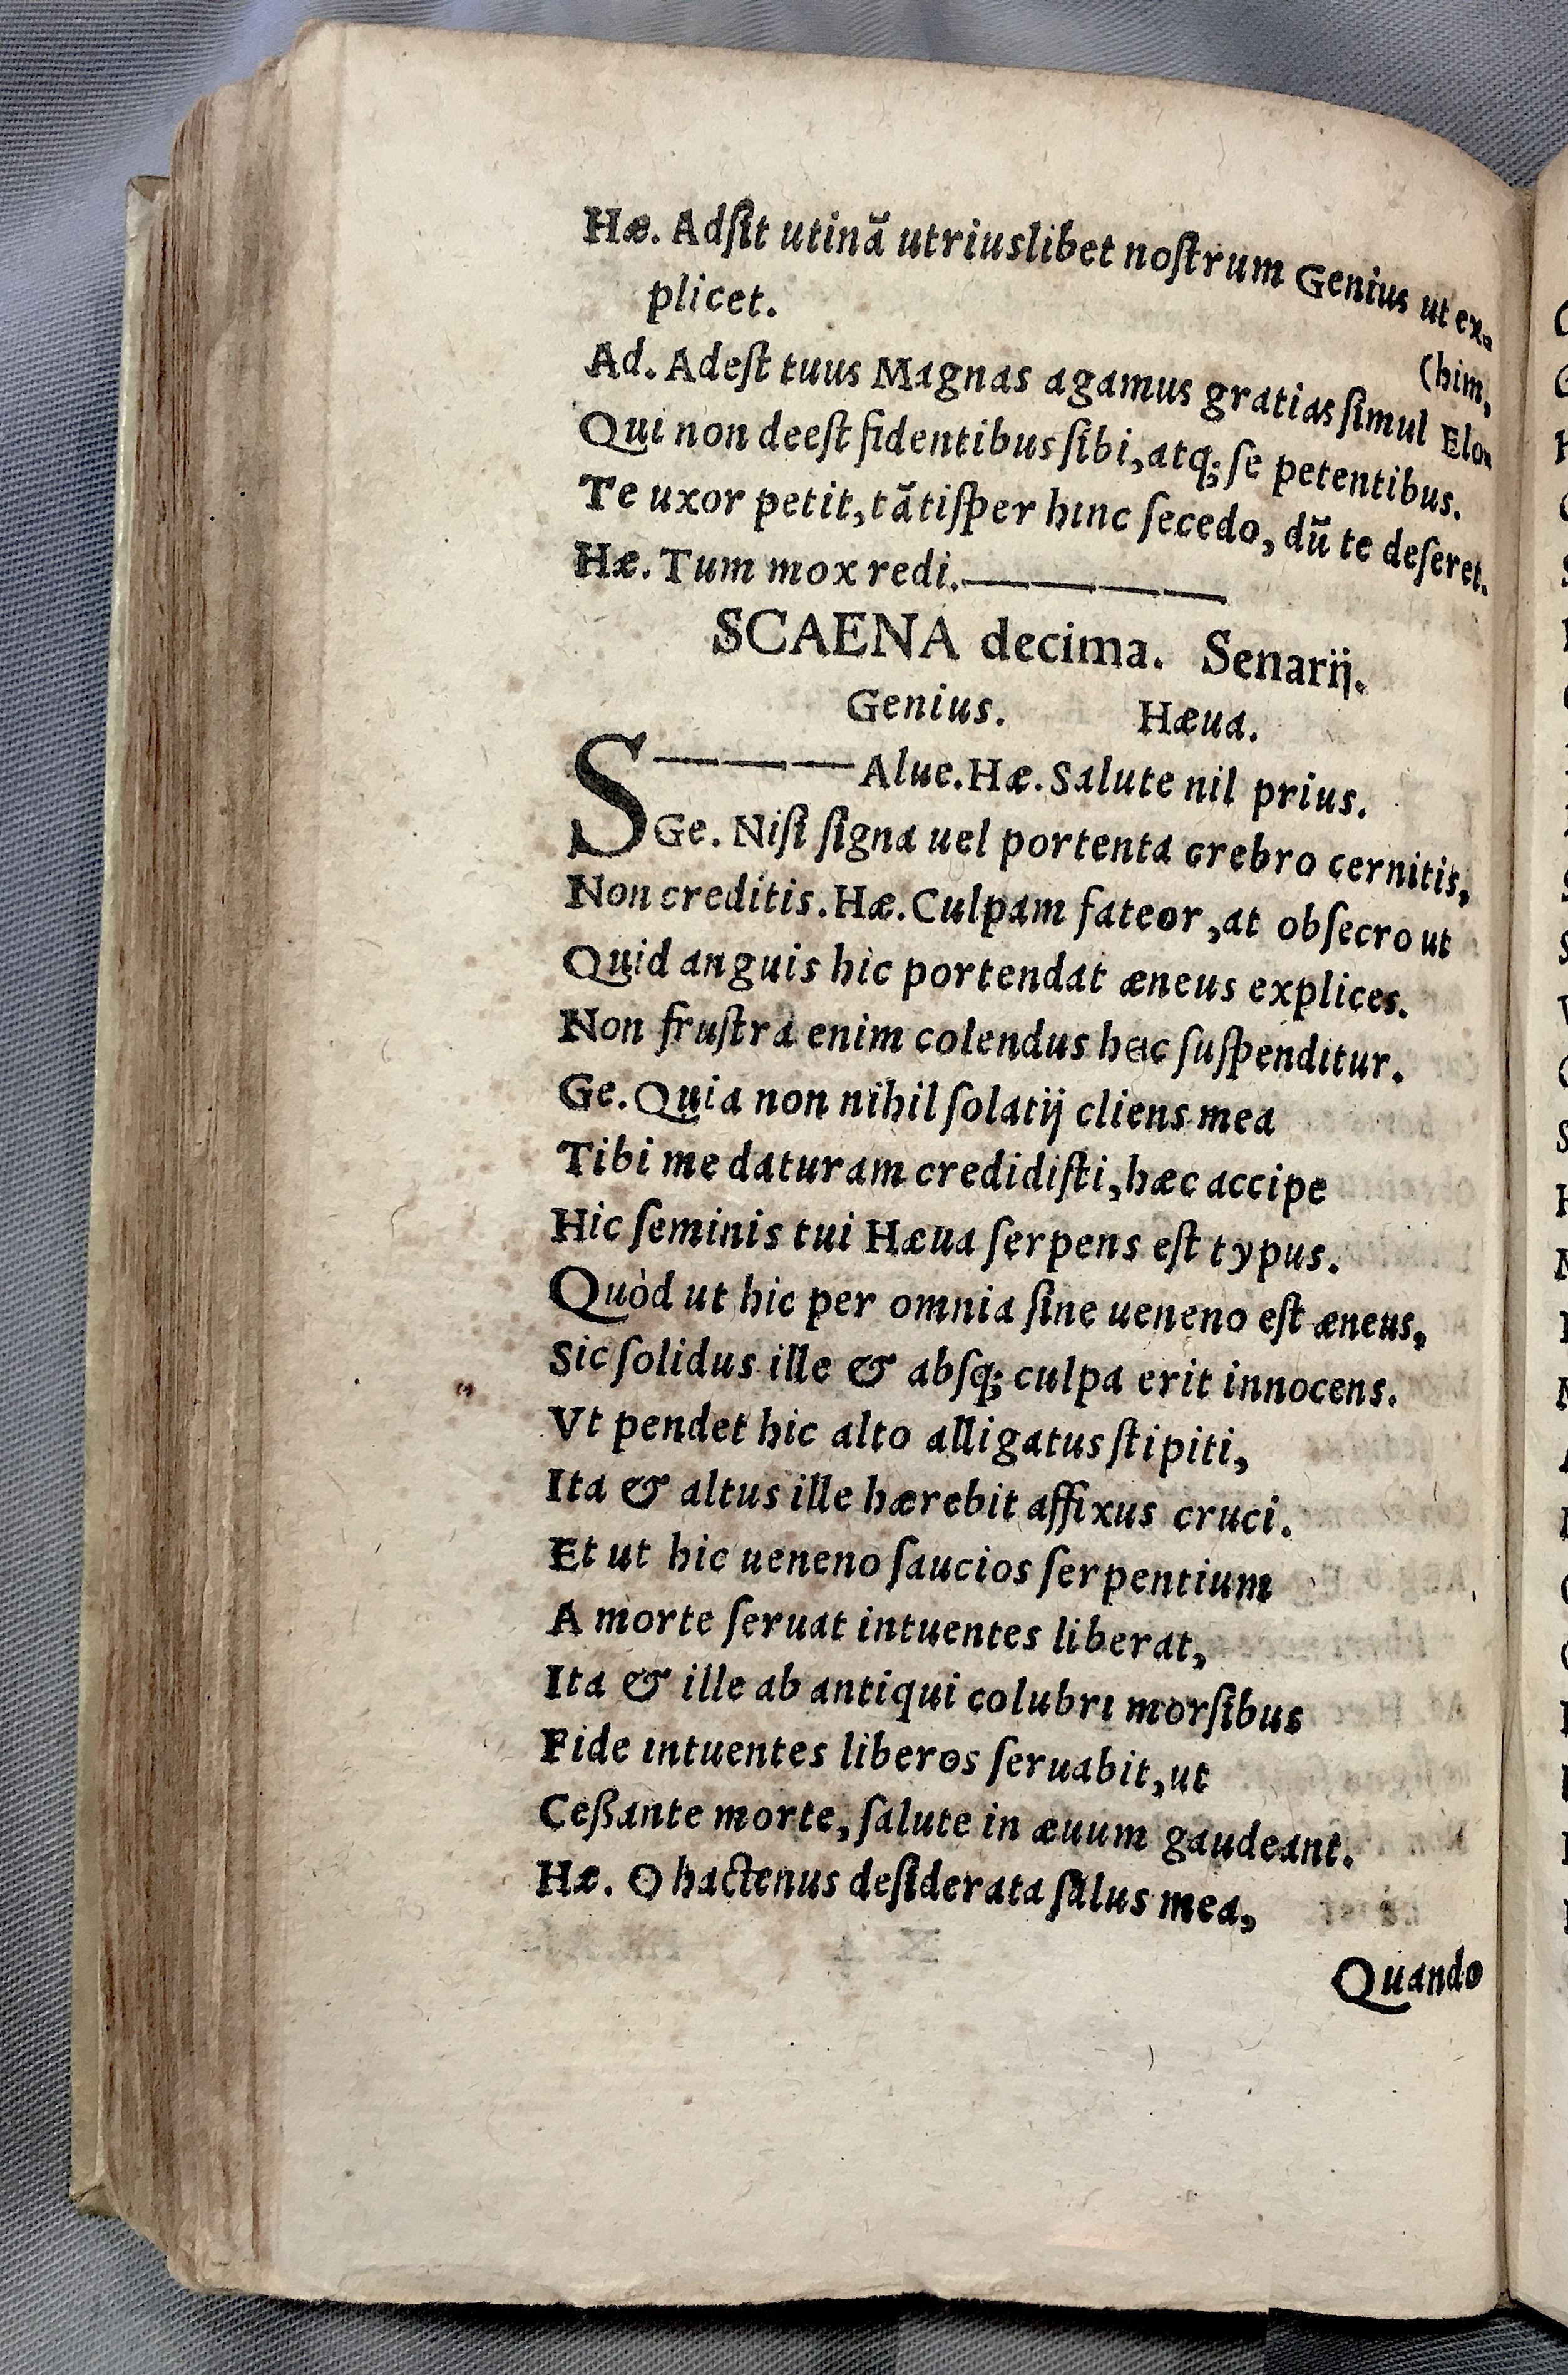 Hæ. Adſit utinā utriuslibet noſtrum Genius ut ex-
plicet.
(him,
Ad. Adeſt tuus Magnas agamus gratias ſimul Elo-
Qui non deeſt fidentibus ſibi, atq; ſe petentibus.
Te uxor petit, tātiſper hinc ſecedo, dū te deſeret.
Hæ. Tum mox redi.————
SCAENA decima. Senarij.
Genius. Hæua.
S————Alue. Hæ. Salute nil prius.
Ge. Niſi ſigna uel portenta crebro cernitis,
Non creditis. Hæ. Culpam fateor, at obſecro ut
Quid anguis hic portendat æneus explices.
Non fruſtra enim colendus hac ſuſpenditur.
Ge. Quia non nihil ſolatij cliens mea
Tibi me daturam credidiſti, hæc accipe
Hic ſeminis tui Hæua ſerpens eſt typus.
Quòd ut hic per omnia ſine ueneno eſt æneus,
Sic ſolidus ille & abſq; culpa erit innocens.
Vt pendet hic alto alligatus ſtipiti,
Ita & altus ille hærebit affixus cruci.
Et ut hic ueneno ſaucios ſerpentium
A morte ſeruat intuentes liberat,
Ita & ille ab antiqui colubri morſibus
Fide intuentes liberos ſeruabit, ut
Ceßante morte, ſalute in æuum gaudeant.
Hæ. O hactenus deſiderata ſalus mea,
Quando